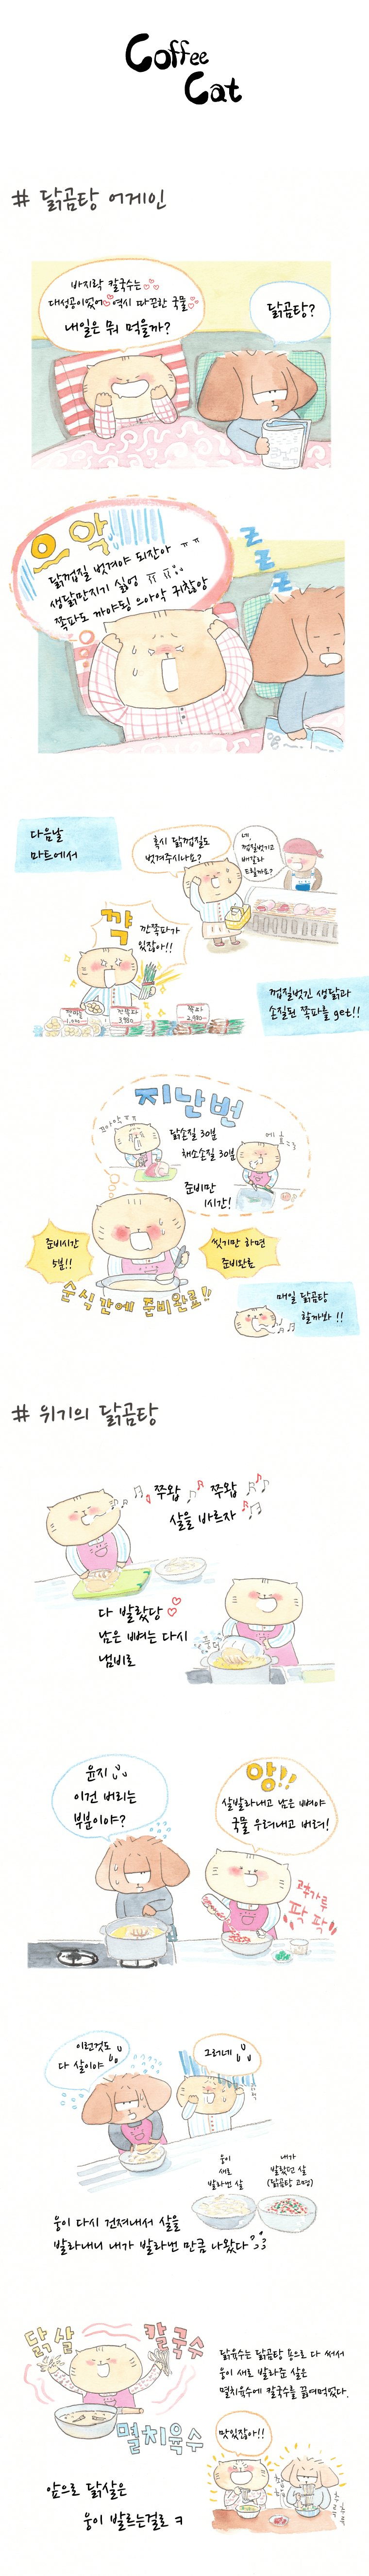 Coffee
Cat
# 닭곰탕 어게인
바지락 칼국수는
대성공이었어 역시 따끈한 국물
내일은 뭐 먹을까?
닭곰탕?
으악
닭껍질 벗겨야 되잖아 ㅠㅠ
생닭만지기 싫엉 ㅠㅠ
쪽파도 까야됭 으아악 귀찮앙
zzz
다음날
마트에서
혹시 닭껍질도
벗겨주시나요?
네,
껍질벗기고
배갈라
드릴까요?
꺅
깐쪽파가
있잖아!!
깐쪽파
3,980
쪽파
2,980
껍질벗긴 생닭과
손질된 쪽파를 get!!
지난번
끄아악ㅠㅠ
닭손질 30분
채소손질 30분
준비만
1시간!
준비시간
5분!!
씻기만 하면
준비완료
순식간에 준비완료!!
매일 닭곰탕
할까봐 !!
# 위기의 닭곰탕
쭈왑 쭈왑
살을 바르자
다 발랐당
남은 뼈는 다시
냄비로
윤지
이건 버리는
부분이야?
앙!!
살발라내고 남은 뼈야
국물 우려내고 버려!
고추가루
팍 팍
이런것도
다 살이야
그러네
웅이
새로
발라번 살
내가
발랐던 살
(닭곰탕 고명)
웅이 다시 건져내서 살을
발라내니 내가 발라번 만큼 나왔다
닭살
칼국수
멸치육수
닭육수는 닭곰탕 용으로 다 써서
웅이 새로 발라준 살은
멸치육수에 칼국수를 끓여먹었다.
맛있잖아!!
앞으로 닭살은
웅이 발르는걸로 ㅋ